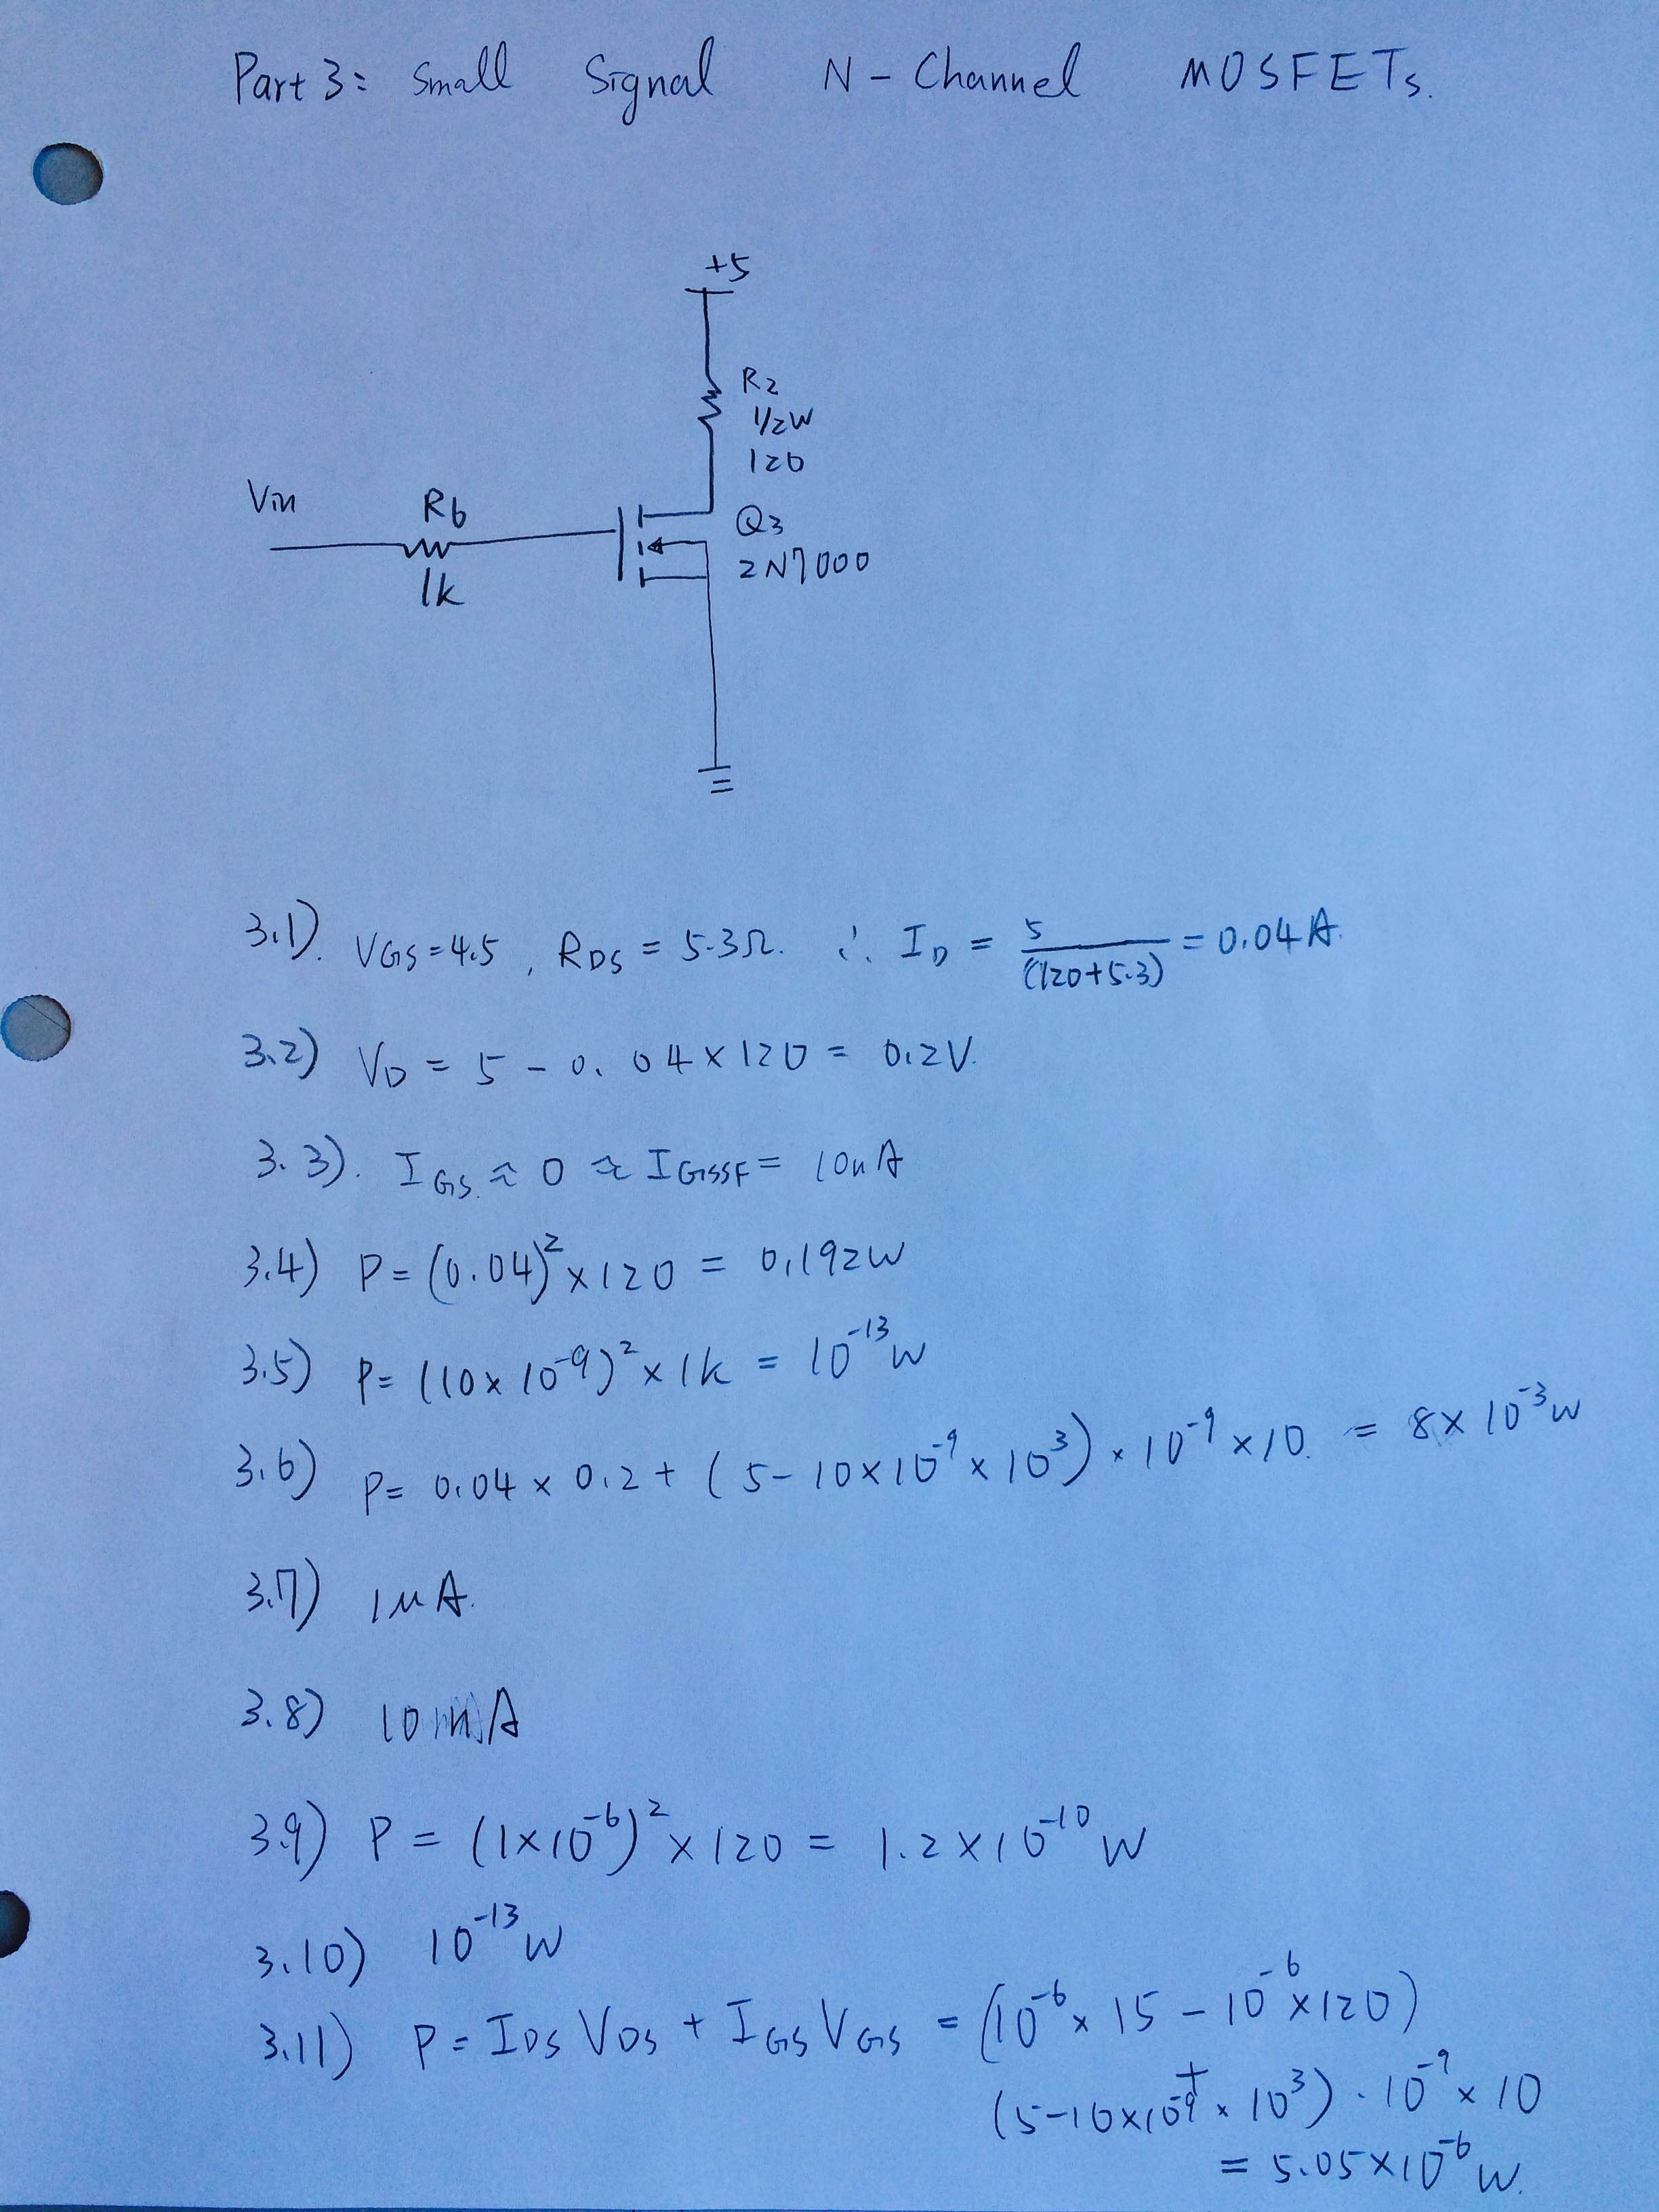 Part 3: Small Signal N-Channel MOSFETs.
+5
R2
1/2W
120
Vin
R6
1k
Q3
2N7000
3.1). VGS=4.5, RDS = 5.3Ω. ∴ ID = 5/(120+5.3) = 0.04A.
3.2) VD = 5 - 0.04×120 = 0.2V.
3.3). IGS. ≈ 0 ≈ IGSSF = 10nA
3.4) P = (0.04)²×120 = 0.192W
3.5) P = (10×10⁻⁹)²×1k = 10⁻¹³W
3.6) P = 0.04×0.2+(5-10×10⁻⁹×10³)·10⁻⁹×10. = 8×10⁻³W
3.7) 1μA.
3.8) 10nA
3.9) P = (1×10⁻⁶)²×120 = 1.2×10⁻¹⁰W
3.10) 10⁻¹³W
3.11) P = IDS VDS + IGS VGS = (10⁻⁶×15-10⁻⁶×120)
+
(5-10×10⁻⁹×10³)·10⁻⁹×10
= 5.05×10⁻⁶W.